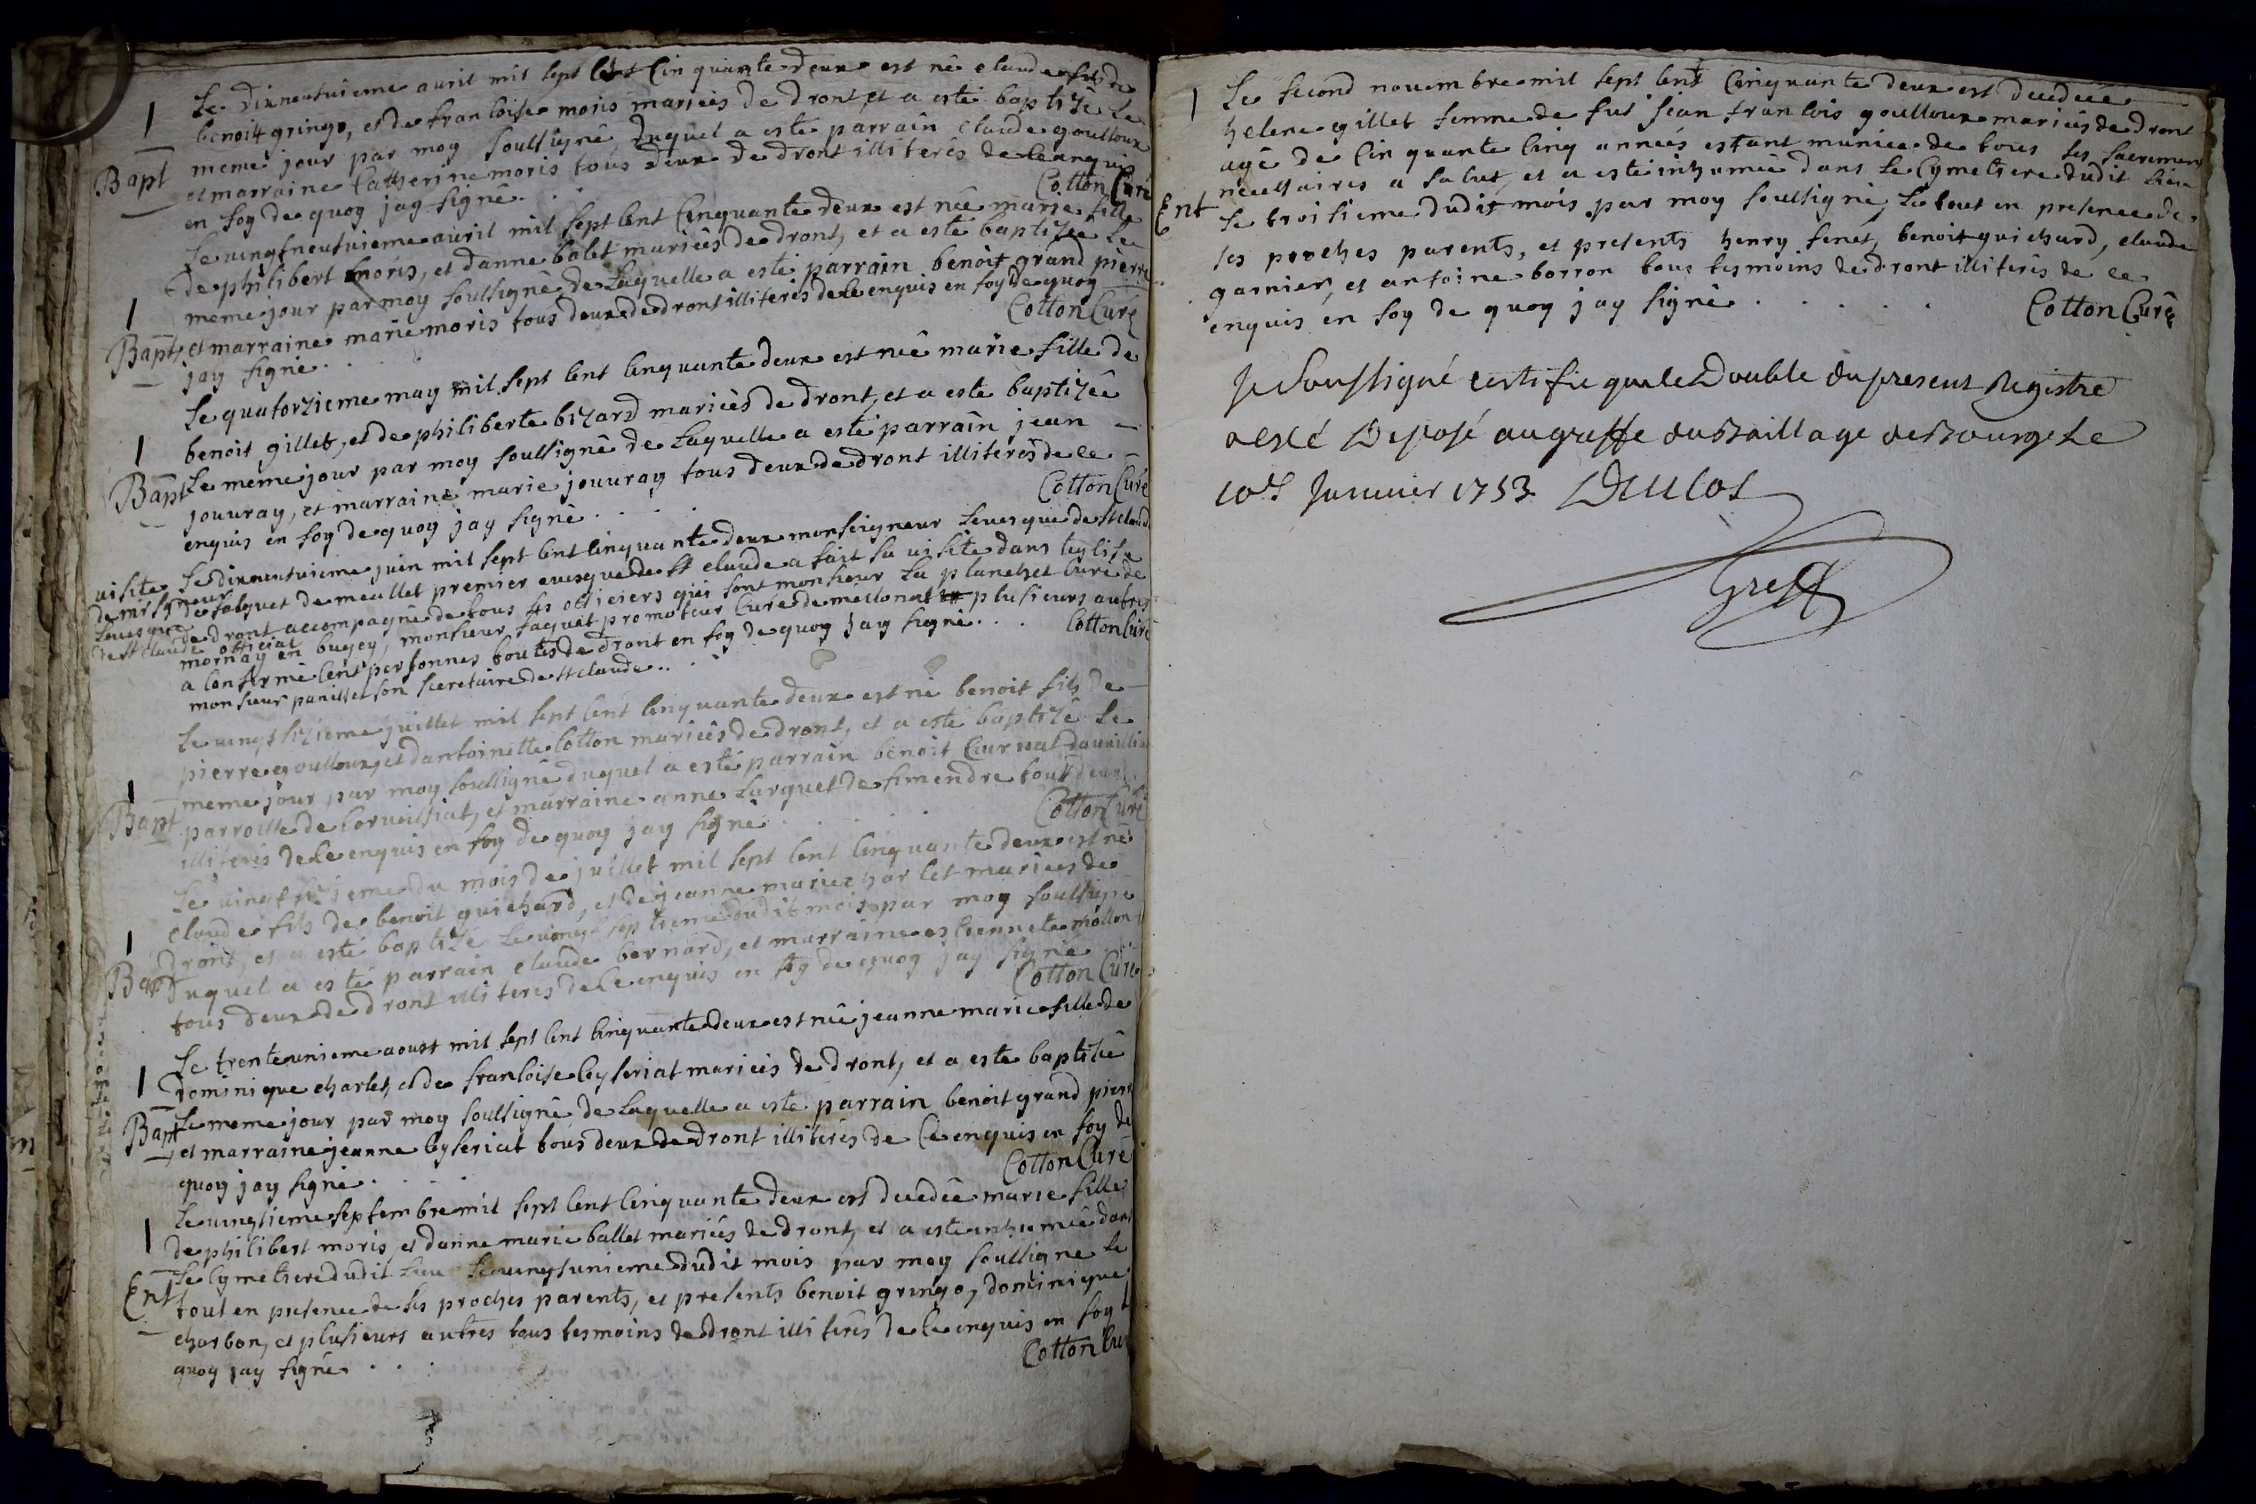 1
Le dixneufvieme avril mil sept cent Cinquante deux est né claude fils de
benoit gringo, et de francoise moris mariés de dront, et a esté baptizé le
Bapt meme jour par moy soussigné, duquel a esté parrain claude goulloux
et marraine Catherine moris tous deux de dront illiterés de ce enquis
en foy de quoy jay signé . Cotton Curé
Le vingtneufvieme avril mil sept cent Cinquante deux est née marie fille
de philibert moris, et danne balet mariés de dront, et a esté baptizée le
1 meme jour par moy soussigné de laquelle a esté parrain benoit grand pierre
Bapt et marraine marie moris tous deux de dront illiterés de ce enquis en foy de quoy
jay signé . . . Cotton Curé
Le quatorzieme may mil sept cent cinquante deux est née marie fille de
1 benoit gillet, et de philiberte bizard mariés de dront, et a esté baptizée
Bapt Le meme jour par moy soussigné de laquelle a esté parrain jean
jouvray, et marraine marie jouvray tous deux de dront illiterés de ce
enquis en foy de quoy jay signé . . . . Cotton Curé
visite Le dixneufvieme juin mil sept cent cinquante deux monseigneur levesque de st claude
de mrsgneur de falquet de meallet premier evesque de st claude a fait sa visite dans leglise
Levesque de dront accompagné de tous ses officiers qui sont monsieur La planchet Curé de
de st claude mornay en bugey, official monsieur jaquet promoteur Curé de mellonat plusieurs autres
a Confirmé cent personnes toutes de dront en foy de quoy jay signé . . . Cotton Curé
monsieur panisset son secretaire de st claude . .
Le vingt sizieme juillet mil sept cent cinquante deux est né benoit fils de
pierre goulloux, et dantoinette Cotton mariés de dront, et a esté baptizé le
1 meme jour par moy soussigné duquel a esté parrain benoit
Bapt parroisse de Corveissiat, et marraine anne Larguet de simendre tous deux
illiterés de ce enquis en foy de quoy jay signé . . . . Cotton Curé
Le vingt sizieme du mois de juillet mil sept cent cinquante deux est né
claude fils de benoit guichard, et de jeanne marie charlet mariées de
1 dront, et a esté baptizé le vingt septieme dudit mois par moy soussigné
Bapt duquel a esté parrain claude bernard, et marraine estiennete mollon
tous deux de dront illiterés de ce enquis en foy de quoy jay signé
Cotton Curé
Le trenteunieme aoust mil sept cent cinquante deux est née jeanne marie fille de
1 dominique charlet, et de francoise Ceyseriat mariés de dront, et a esté baptizée
Bapt Le meme jour par moy soussigné de laquelle a esté parrain benoit grand pierre
et marraine jeanne Ceyseriat tous deux de dront illiterés de Ce enquis en foy de
quoy jay signé . . . Cotton Curé
Le vingtieme septembre mil sept cent cinquante deux est decedée marie fille
1 de philibert moris, et danne marie ballet mariés de dront, et a esté inhumée dans
Le Cymetiere dudit Lieu le vingtunieme dudit mois par moy soussigné le
Ent tout en presence de ses proches parents, et presents benoit gringo, dominique
charbon, et plusieurs autres tous tesmoins de dront illiterés de Ce enquis en foy de
quoy jay signé . . . Cotton Cu
1 Le second novembre mil sept cent Cinquante deux est decedée
helene gillet femme de fut jean francois goulloux mariés de dront
agé de Cinquante Cinq années estant munice de tous ses sacremens
necessaires a salut, et a esté inhumée dans Le Cymetiere dudit Lieu
Ent Le troisieme dudit mois par moy soussigné, Le tout en presence de
ses proches parents, et presents henry fenet, benoit guichard, claude
garnier, et antoine borron tous tesmoins de dront illiterés de ce
enquis en foy de quoy jay signé . . . . . Cotton Curé
Je soussigné certifie que le Double du present Registre
a esté Deposé au greffe du Baillage de Bourg Le
Janvier 1753 Duclos
Greff